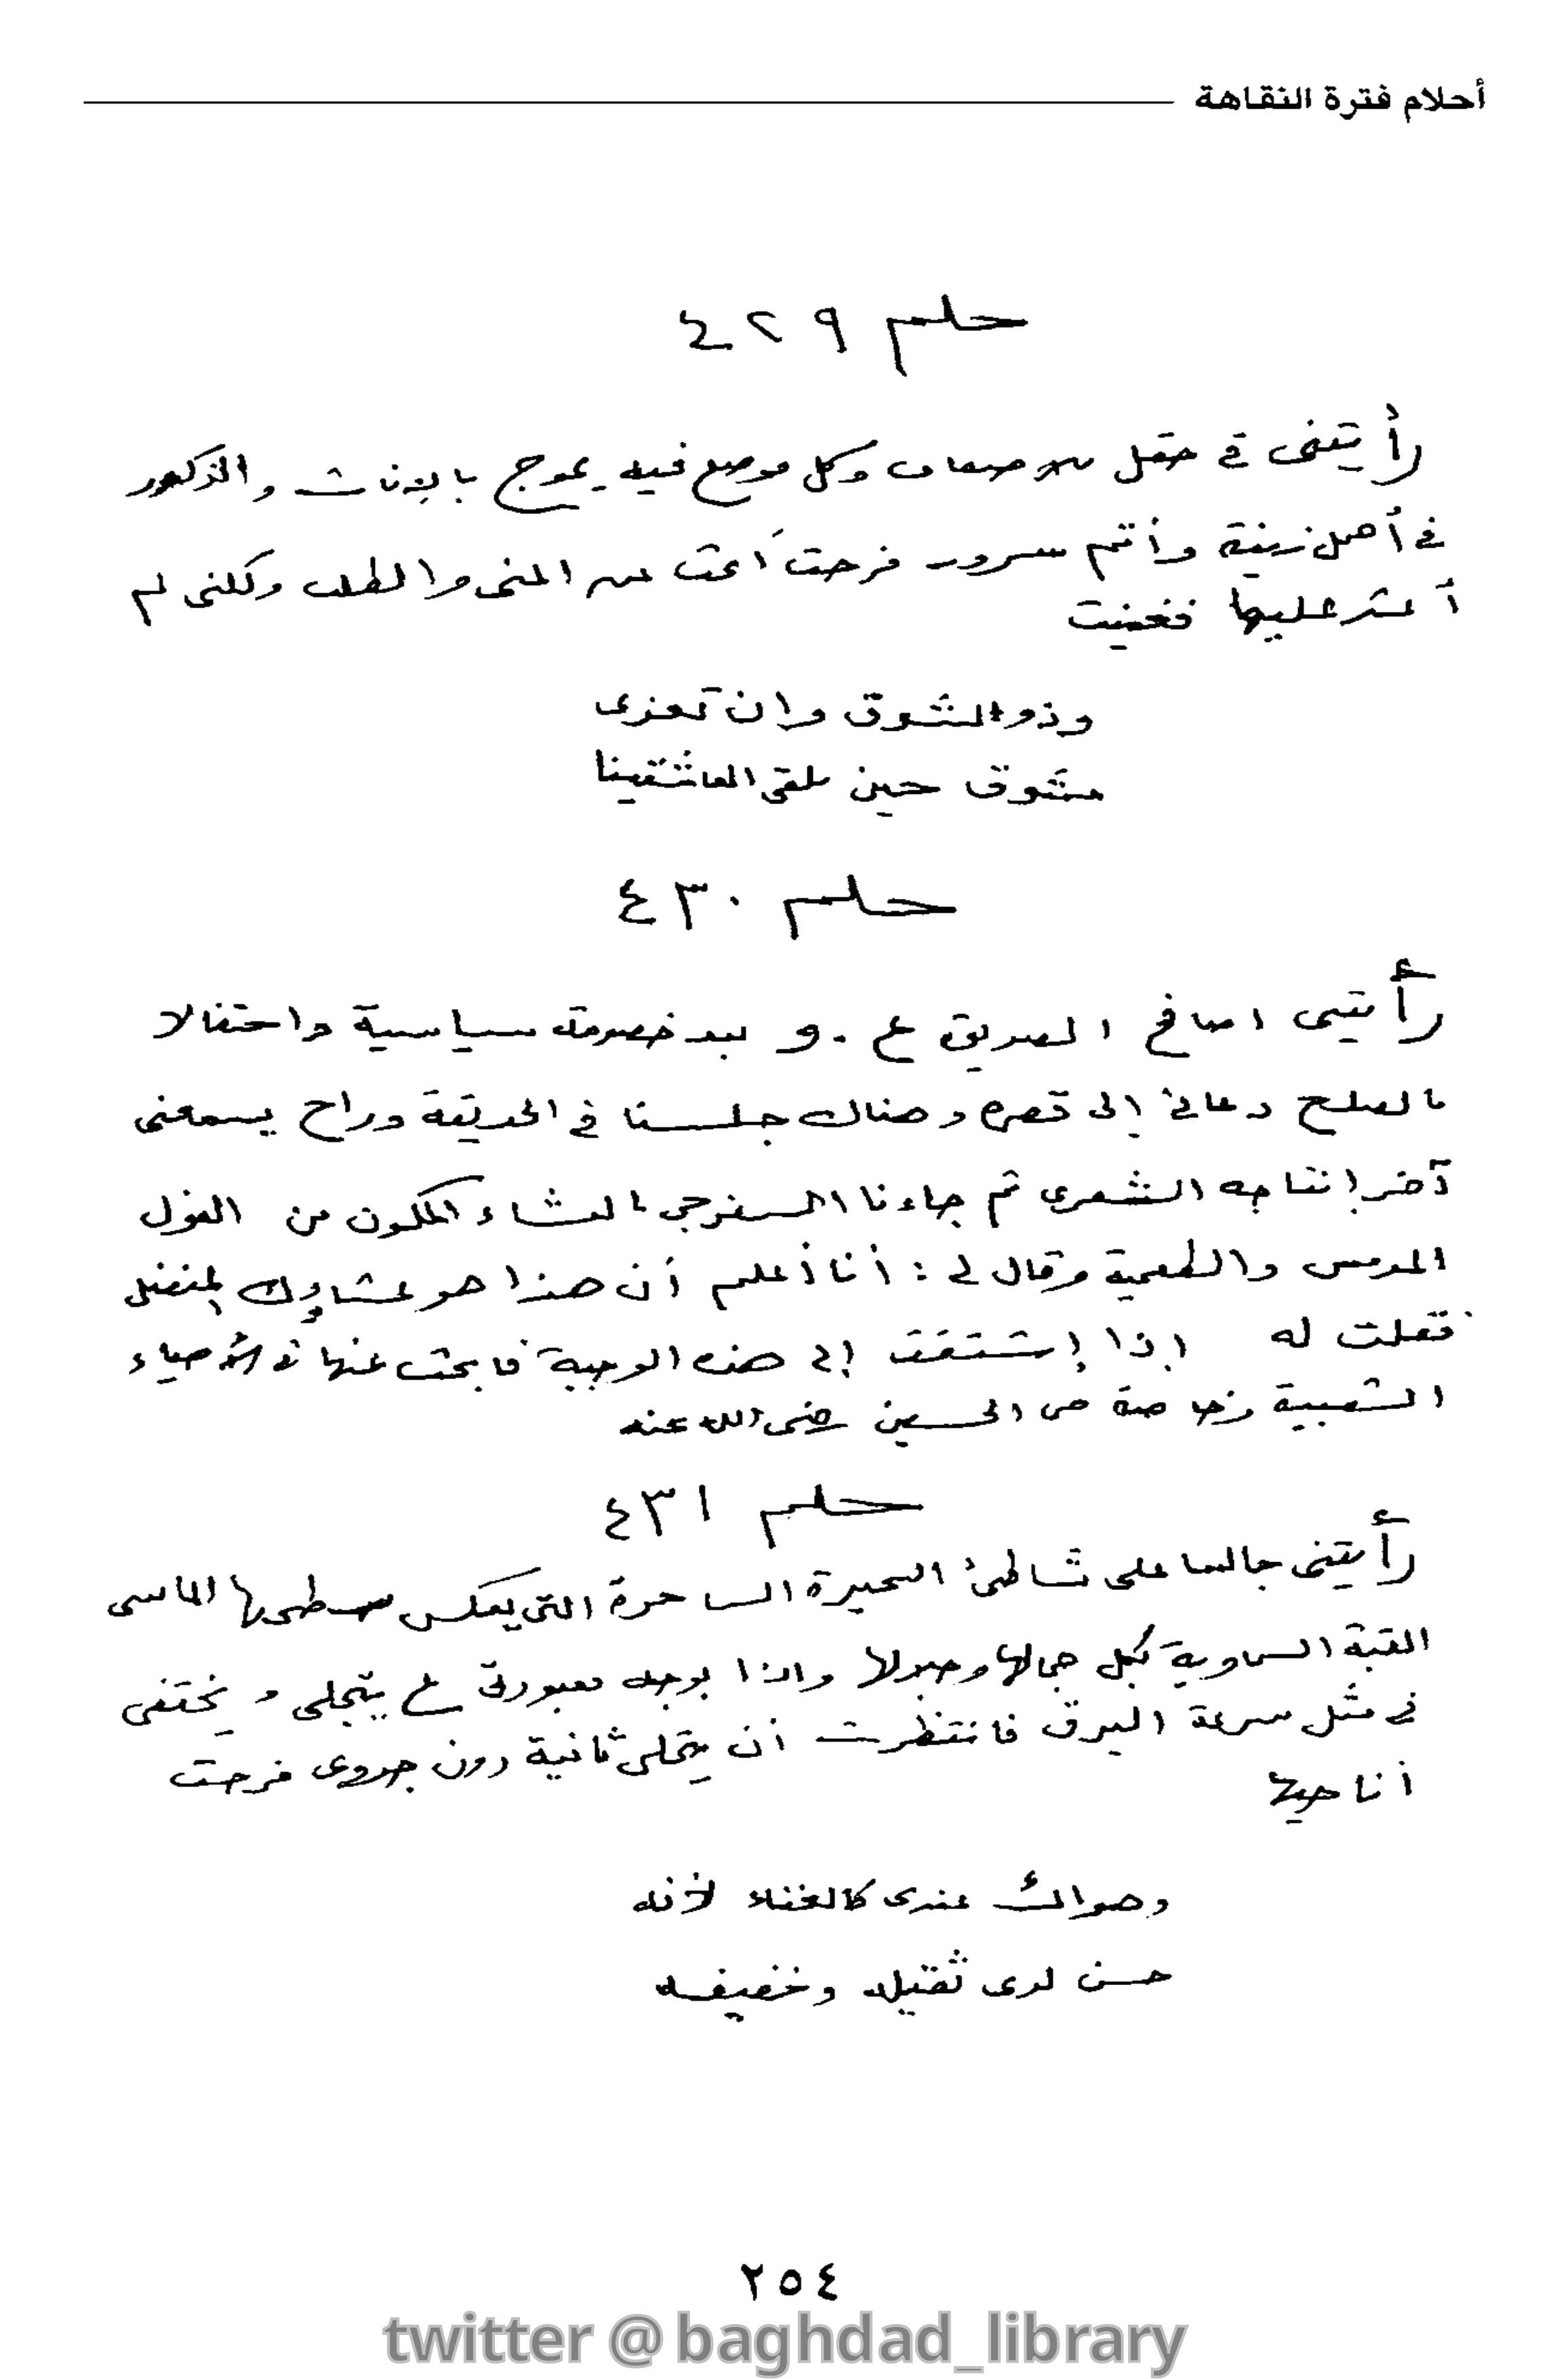 أحلام فترة النقاهة
حلم ٤٢٩
رأيتنى فى حفل للأصهار وكل موضع فيه يموج بالإناث والذكور
فى أجمل زينة وأتم سرور فرحت أبحث عن المنى والطلب ولكنى لم
أعثر عليها فغنيت
وذو الشوق وان تعزى
مشوق حين يلقى العاشقينا
حلم ٤٣٠
رأيتنى اصافح الصديق ع . و بعد خصومة سياسية واحتفالا
بالصلح دعانى إلى قصره وهناك جلسنا فى الحديقة وراح يسمعنى
آخر إنتاجه الشعرى ثم جاءنا السفرجى بالعشاء المكون من الفول
المدمس والطعمية وقال لى : أنا أعلم أن هذا هو عشاؤك المفضل
فقلت له إذا إشتقت إلى هذه الوجبة فابحث عنها فى الأحياء
الشعبية وخاصة حى الحسين رضى الله عنه
حلم ٤٣١
رأيتنى جالسا على شاطئ البحيرة الساحرة التى يعكس سطحها الماسى
القبة السماوية بكل جمالها وجلالها واذا بوجه معبودتى ع يتجلى و يختفى
فى مثل سرعة البرق فانتظرت أن يتجلى ثانية دون جدوى فرحت
أناجيها
وهواك عندى كالغناء لأنه
حسن لدى ثقيله وخفيفه
٢٥٤
twitter @baghdad_library